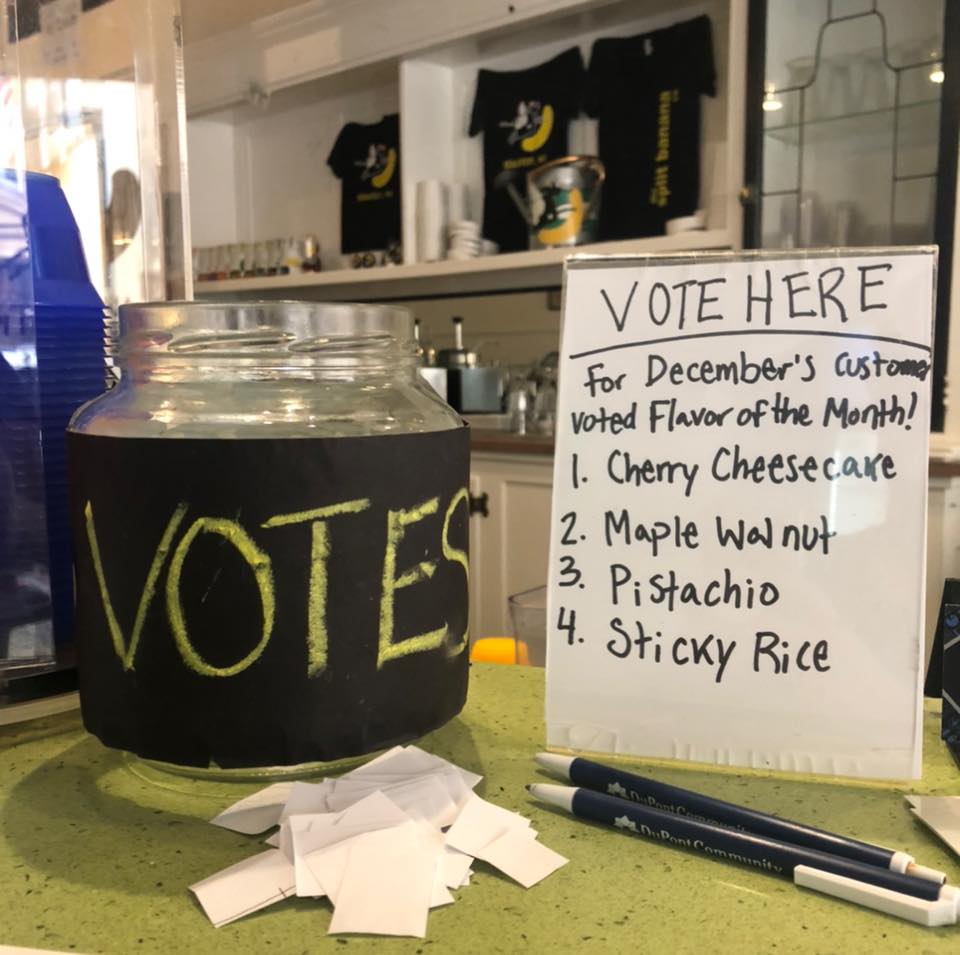 split banana
VOTES
VOTE HERE
For December's Customer
voted Flavor of the Month!
1. Cherry Cheesecake
2. Maple Walnut
3. Pistachio
4. Sticky Rice
DuPont Community
DuPont Community